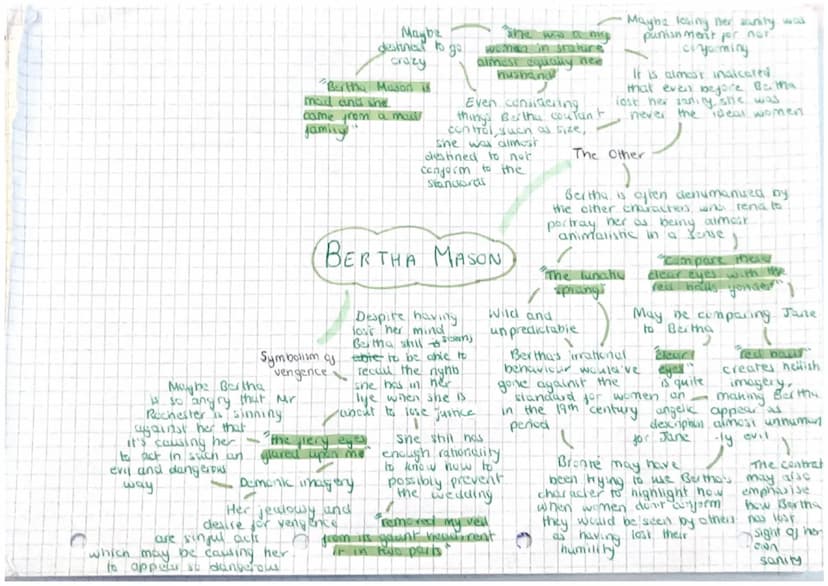 BERTHA MASON
The Other
Maybe
destined to go
crazy
"Bertha Mason is
mad and she
came from a mad
family"
women in stature
almost equally her
husband"
Maybe losing her sanity was
punishment for not
It is almost indicated
that even before Bertha
lost her sanity she was
never the ideal women
Even considering
things Bertha
control, such as size,
she was almost
destined to not
conform to the
standards
Bertha is often dehumanized by
the other characters who tend to
portray her as being almost
animalistic in a sense
"The lunatic
sprang"
Wild and
unpredictable
Bertha's irrational
behaviour would've
gone against the
standard for women
in the 19th century
period
Bronte may have
been trying to use Bertha's
character to highlight how
when women don't conform
they would be seen by others
as having lost their
humility
"Compare these
clear eyes with the
red balls yonder"
May be comparing Jane
to Bertha
"clear
eyes"
is quite
an
angelic
description
for Jane
"red balls"
creates hellish
imagery,
making Bertha
appear as
almost unhuman
-ly evil
The contrast
may also
emphasise
how Bertha
has lost
sight of her
own
sanity
Symbolism of
vengence
Despite having
lost her mind
Bertha still
able to be able to
recall the
she has in her
life when she is
about to lose
She still has
enough rationality
to know how to
possibly prevent
the wedding
"removed my veil
from its gaunt
it in two parts"
"the fiery eyes
glared upon me"
Maybe Bertha
is so angry that Mr
Rochester is sinning
against her that
it's causing her
to act in such an
evil and dangerous
way
Demonic imagery
Her jealousy and
desire for vengence
are sinful acts
which may be causing her
to appear so dangerous